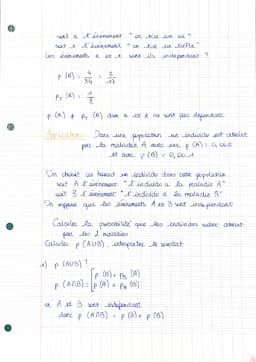 soit R l'événement "on tire un roi"
soit T l'événement "on tire un trèfle"
Les événements R et T sont ils indépendant ?
p (R) = 4/34 = 2/17
p_T (R) = 1/8
p (R) ≠ p_T (R) donc R et T ne sont pas dépendant
Application: Dans une population un individu est atteint
par la maladie A avec une p (A) = 0,005
et avec p (B) = 0,01
On choisit au hasard un individu dans cette population.
soit A l'événement "l'individu a la maladie A"
soit B l'événement "l'individu a la maladie B"
On suppose que les événements A et B sont indépendant
Calculer la probabilité que les individus soient atteint
par les 2 maladies
Calculer p (A∪B), interpréter le résultat
1) p (A∪B) ?
p (A∩B) = [ p (B) × p_B (A)
p (A) × p_A (B)
or A et B sont indépendant
donc p (A∩B) = p (A) × p (B)